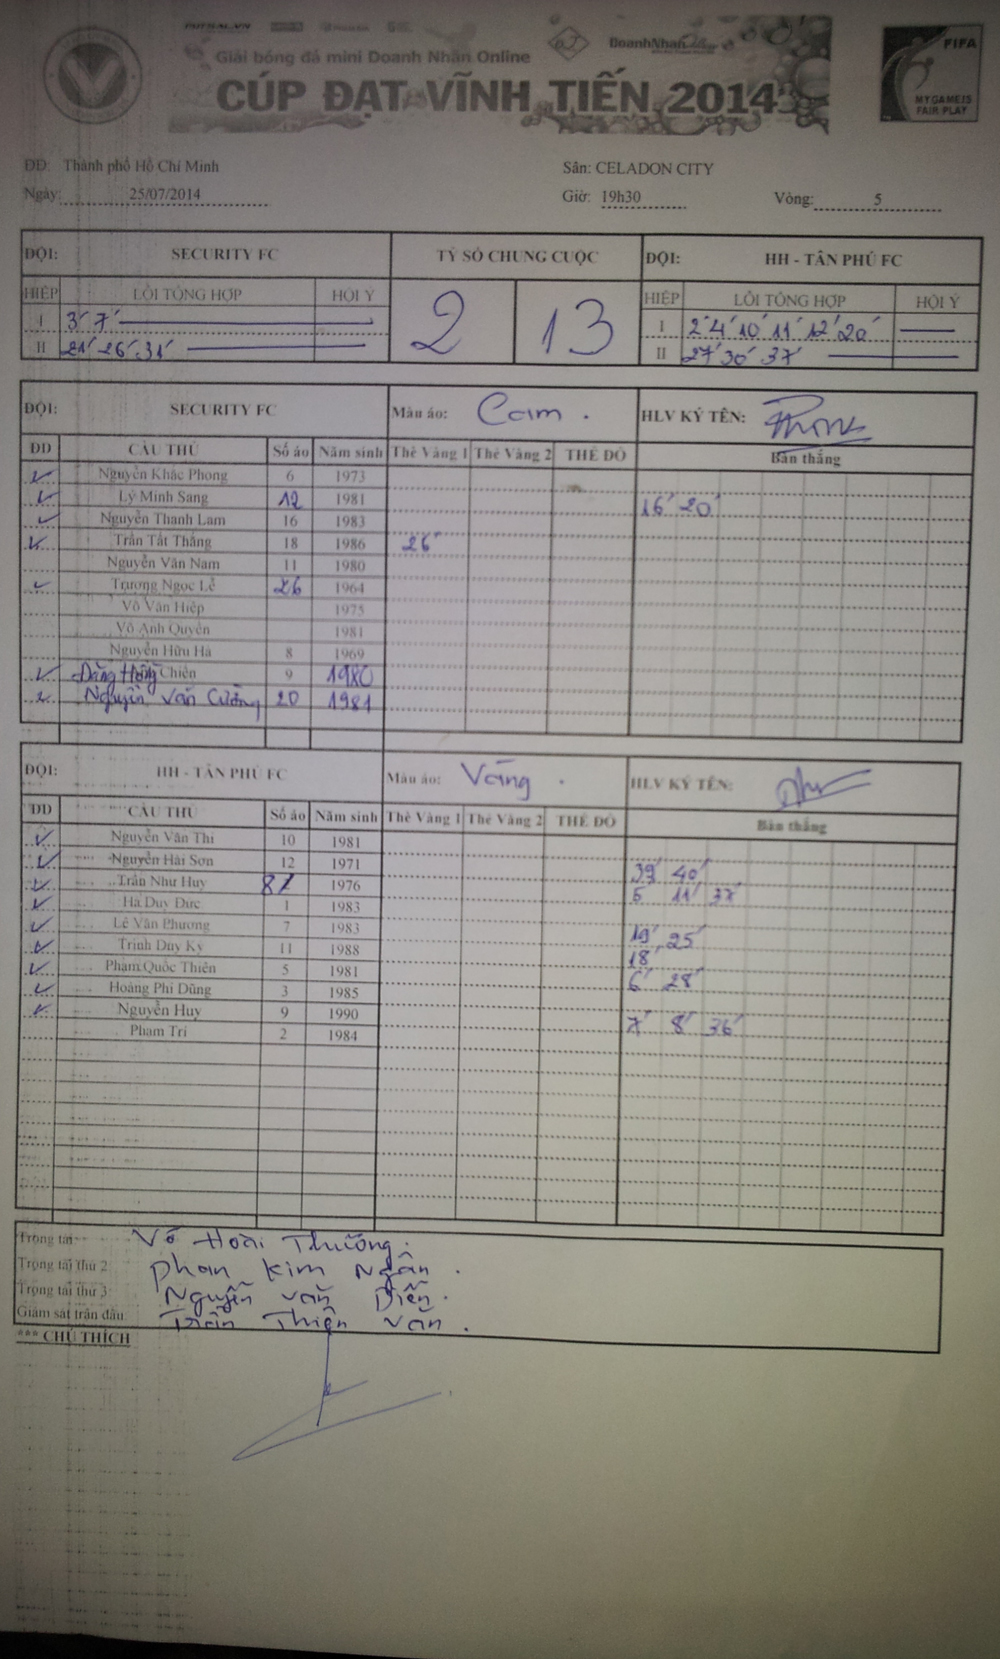 Giải bóng đá mini Doanh Nhân Online
DoanhNhan
CÚP ĐẠT VĨNH TIẾN 2014
FIFA
MY GAME IS
FAIR PLAY
ĐĐ: Thành phố Hồ Chí Minh Sân: CELADON CITY
Ngày: 25/07/2014 Giờ: 19h30 Vòng: 5
ĐỘI: SECURITY FC TỶ SỐ CHUNG CUỘC ĐỘI: HH - TÂN PHÚ FC
HIỆP LỖI TỔNG HỢP HỘI Ý 2 13 HIỆP LỖI TỔNG HỢP HỘI Ý
I 3' 7' I 2' 4' 10' 11' 12' 20'
II 21' 26' 31' II 27' 30' 37'
ĐỘI: SECURITY FC Màu áo: Cam . HLV KÝ TÊN:
ĐD CẦU THỦ Số áo Năm sinh Thẻ Vàng 1 Thẻ Vàng 2 THẺ ĐỎ Bàn thắng
Nguyễn Khắc Phong 6 1973
Lý Minh Sang 12 1981 16' 20'
Nguyễn Thanh Lam 16 1983
Trần Tất Thắng 18 1986 26'
Nguyễn Văn Nam 11 1980
Trương Ngọc Lễ 26 1964
Võ Văn Hiệp 1975
Võ Anh Quyền 1981
Nguyễn Hữu Hà 8 1969
Đặng Hồng Chiến 9 1980
Nguyễn Văn Cường 20 1981
ĐỘI: HH - TÂN PHÚ FC Màu áo: Vàng . HLV KÝ TÊN:
ĐD CẦU THỦ Số áo Năm sinh Thẻ Vàng 1 Thẻ Vàng 2 THẺ ĐỎ Bàn thắng
Nguyễn Văn Thi 10 1981
Nguyễn Hải Sơn 12 1971 39' 40'
Trần Như Huy 1976 5' 11' 37'
Hà Duy Đức 1 1983
Lê Văn Phương 7 1983 19' 25'
Trịnh Duy Kỳ 11 1988 18'
Phạm Quốc Thiên 5 1981 6' 28'
Hoàng Phi Dũng 3 1985
Nguyễn Huy 9 1990 7' 8' 36'
Phạm Trí 2 1984
Trọng tài Võ Hoài Thương.
Trọng tài thứ 2 Phan Kim Ngân .
Trọng tài thứ 3 Nguyễn Văn Diễn.
Giám sát trận đấu Trần Thiện Văn .
*** CHÚ THÍCH